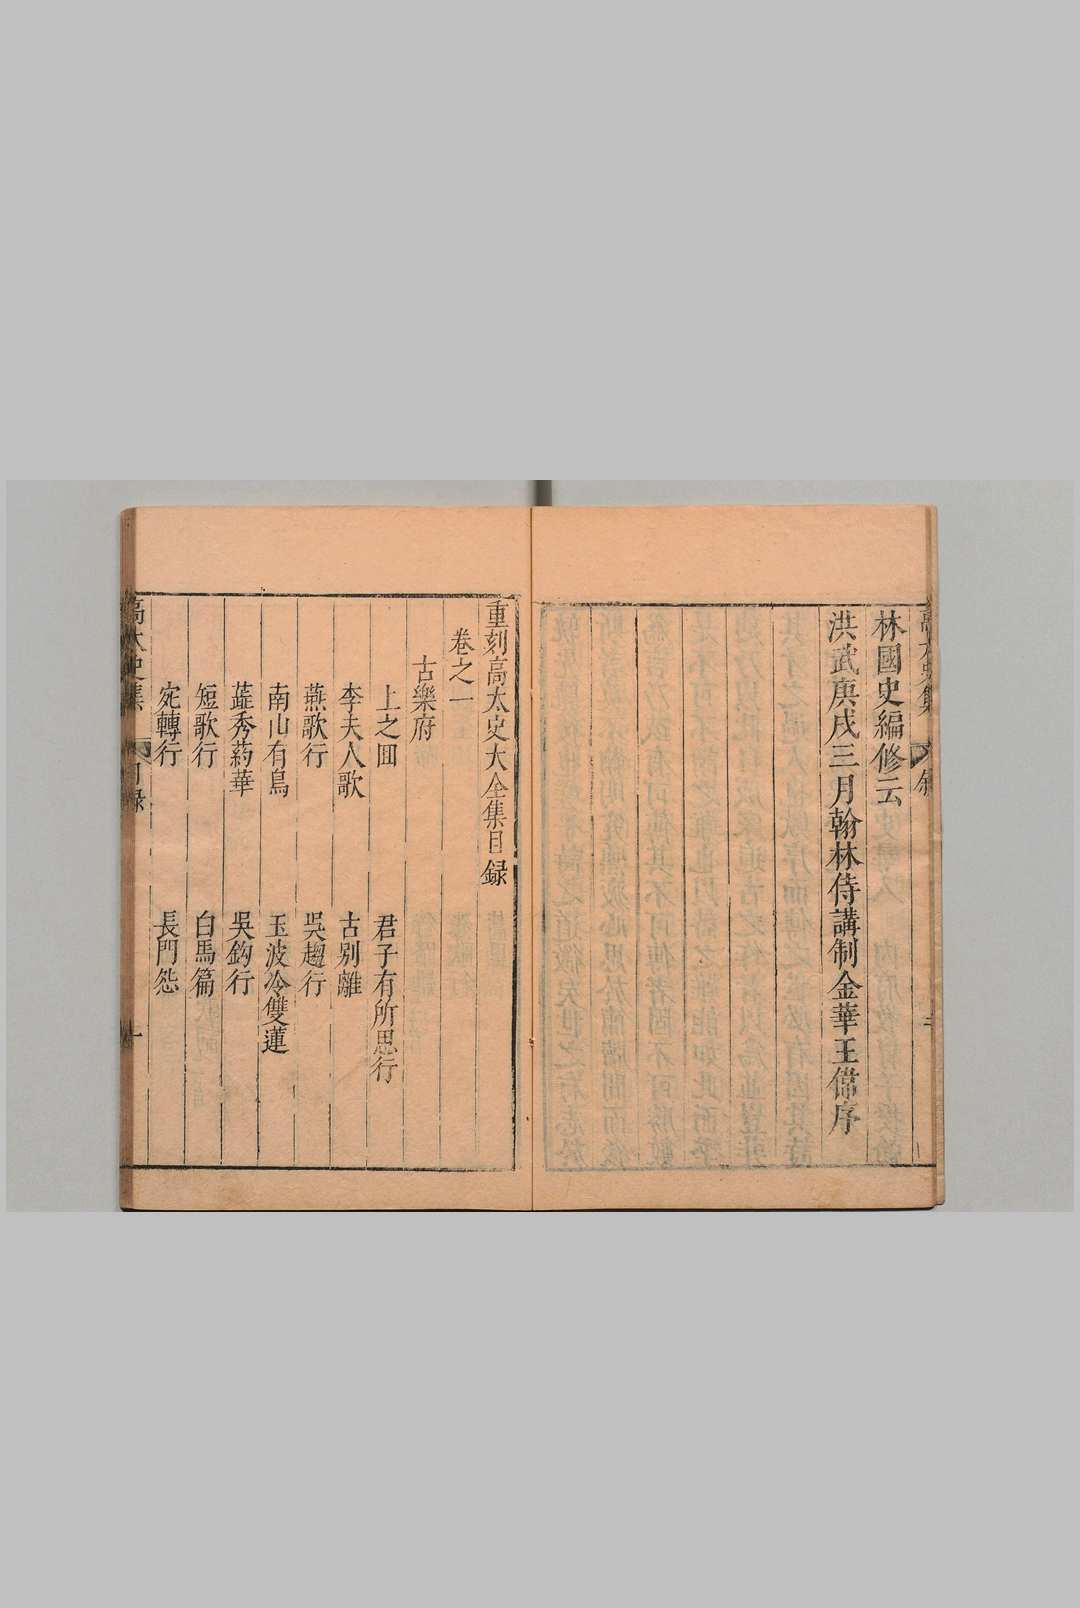 林國史編修云
洪武庚戌三月翰林侍講制金華王偁序
重刻高太史大全集目録
卷之一
古樂府
上之回
君子有所思行
李夫人歌
古別離
燕歌行
吳趨行
南山有鳥
玉波冷雙蓮
蘼秀葯華
吳鈎行
短歌行
白馬篇
宛轉行
長門怨
高太史集
目録
一